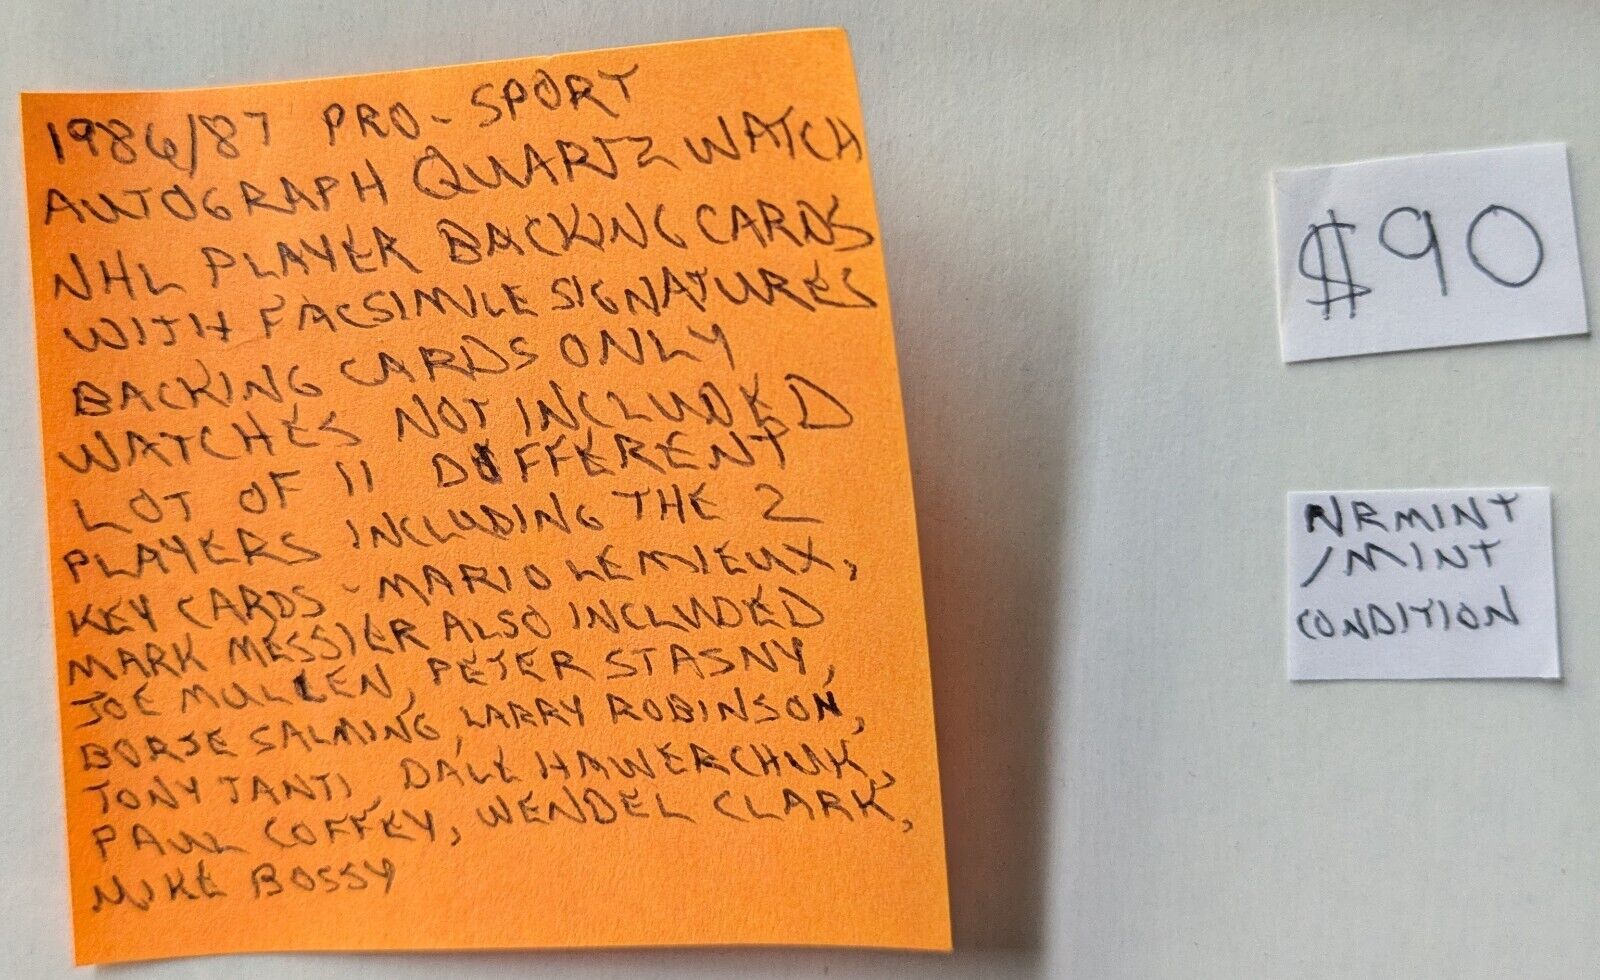 1986/87 PRO-SPORT
AUTOGRAPH QUARTZ WATCH
NHL PLAYER BACKING CARDS
WITH FACSIMILE SIGNATURES
BACKING CARDS ONLY
WATCHES NOT INCLUDED
LOT OF 11 DIFFERENT
PLAYERS INCLUDING THE 2
KEY CARDS - MARIO LEMIEUX,
MARK MESSIER ALSO INCLUDED
JOE MULLEN, PETER STASNY,
BORJE SALMING, LARRY ROBINSON,
TONY TANTI, DALE HAWERCHUK,
PAUL COFFEY, WENDEL CLARK,
MIKE BOSSY
$90
NRMINT
/MINT
CONDITION